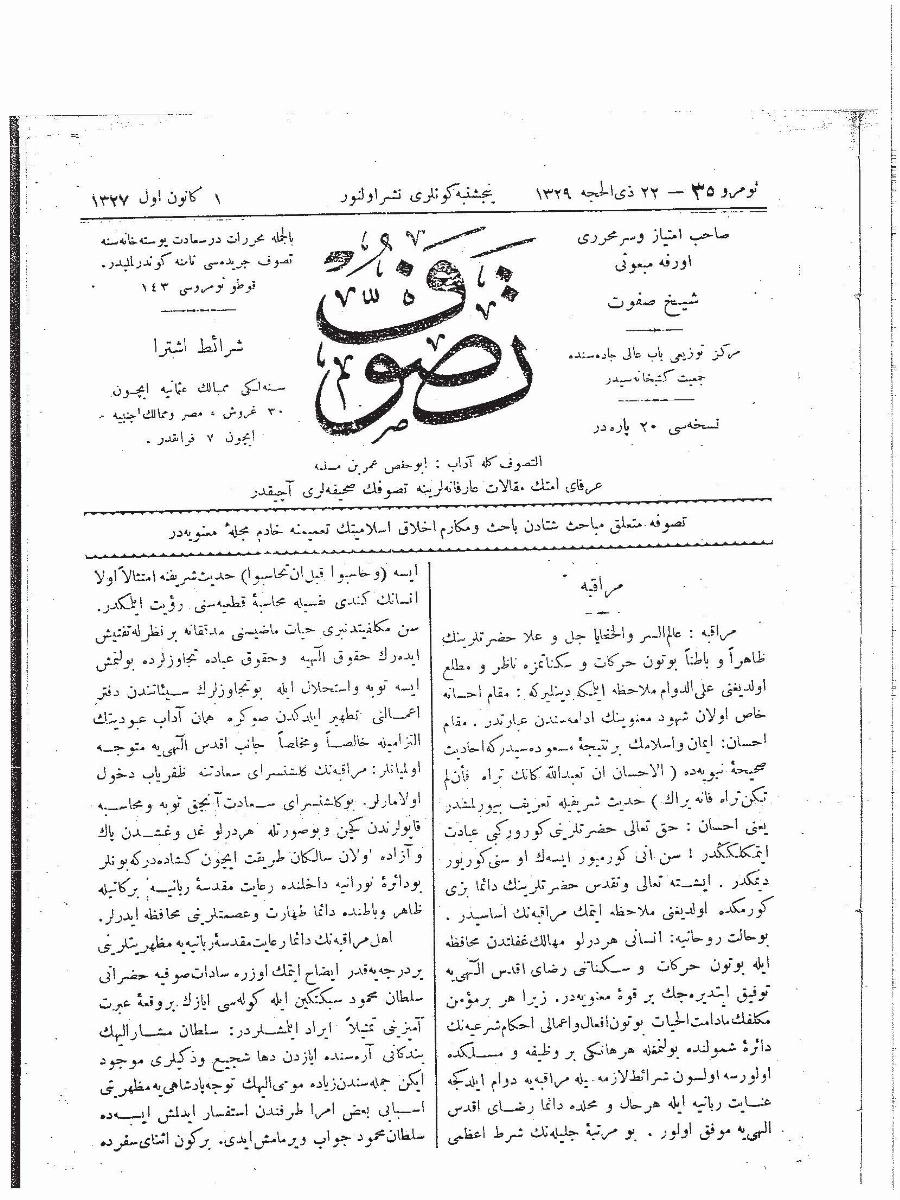 نومرو ٣٥ — ٢٢ ذی الحجه ١٣٢٩
پنجشنبه كونلری نشر اولنور
١ كانون اول ١٣٢٧
صاحب امتیاز وسر محرری
اورفه مبعوثی
شیخ صفوت
مركز توزیعی باب عالی جاده‌سنده
جمعیت كتبخانه‌سیدر
نسخه‌سی ٢٠ پاره‌در
تصوف
بالجمله محررات درسعادت پوسته‌خانه‌سنه
تصوف جریده‌سی نامنه كوندرلمليدر.
قوطو نومروسی ١٤٣
شرائط اشترا
سنه‌لكی ممالك عثمانیه ایچون
٣٠ غروش ، مصر وممالك اجنبیه
ایچون ٧ فرانقدر .
التصوف كله آداب : ابوحفص عمر بن مسلمه
عرفای امتك مقالات عارفانه‌لرینه تصوفك صحیفه‌لری آچیقدر
تصوفه متعلق مباحث شتادن باحث ومكارم اخلاق اسلامیتك تعمیمنه خادم مجلهٔ معنویه‌در
مراقبه
مراقبه : عالم السر والخفایا جل و علا حضرتلرینك
ظاهراً و باطناً بوتون حركات و سكناتمزه ناظر و مطلع
اولدیغنی علی الدوام ملاحظه ایتمكه دینلیركه : مقام احسانه
خاص اولان شهود معنوینك ادامه‌سندن عبارتدر . مقام
احسان: ایمان واسلامك بر نتیجهٔ مسعوده‌سیدركه احادیث
صحیحهٔ نبویه‌ده ( الاحسان ان تعبدالله كانك تراه فأن‌لم
تكن تراه فانه یراك ) حدیث شریفیله تعریف بیورلمشدر
یعنی احسان : حق تعالی حضرتلرینی كورور كبی عبادت
ایتمكلككدر ! سن آنی كورمیور ایسه‌ك او سنی كوریور
دیمكدر . ایشته تعالی وتقدس حضرتلرینك دائما بزی
كورمكده اولدیغنی ملاحظه ایتمك مراقبه‌نك اساسیدر .
بوحالت روحانیه: انسانی هردرلو مهالك غفلتدن محافظه
ایله بوتون حركات و سكناتنی رضای اقدس الٓهی‌یه
توفیق ایتدیره‌جك بر قوهٔ معنویه‌در. زیرا هر برمؤمن
مكلفك مادامت الحیات بوتون افعال واعمالی احكام شرعیه‌نك
دائرهٔ شمولنده بولنمغله هرهانكی بر وظیفه و مسلكده
اولورسه اولسون شرائط لازمه‌سیله مراقبه‌یه دوام ایلدكجه
عنایت ربانیه ایله هرحال و محلده دائما رضای اقدس
الٓهی‌یه موفق اولور . بو مرتبهٔ جلیله‌نك شرط اعظمی
ایسه (وحاسبوا قبل ان تحاسبوا) حدیث شریفنه امتثالاً اولا
انسانك كندی نفسیله محاسبهٔ قطعیه‌سنی رؤیت ایتمكدر.
سن مكلفیتدنبری حیات ماضیسنی مدققانه بر نظرله تفتیش
ایده‌رك حقوق الٓهیه وحقوق عباده تجاوزلرده بولنمش
ایسه توبه واستحلال ایله بوتجاوزلرك سیئاتندن دفتر
اعمالنی تطهیر ایلدكدن صوكره همان آداب عبودیتك
التزامیله خالصاً ومخلصاً جانب اقدس الٓهی‌یه متوجه
اولمیانلر: مراقبه‌نك كلشنسرای سعادتنه ظفریاب دخول
اولامازلر. بوكلشنسرای سعادت آنجق توبه ومحاسبه
قاپولرندن كچن وبوصورتله هردرلو غل وغشدن پاك
و آزاده اولان سالكان طریقت ایچون كشاده‌دركه بونلر
بودائرهٔ نورانیه داخلنده رعایت مقدسهٔ ربانیه بركاتیله
ظاهر وباطنده دائما طهارت وعصمتلرینی محافظه ایدرلر.
اهل مراقبه‌نك دائما رعایت مقدسهٔ ربانیه‌یه مظهریتلرینی
بردرجه‌یه‌قدر ایضاح ایتمك اوزره سادات صوفیه حضراتی
سلطان محمود سبكتكین ایله كوله‌سی ایازك بر وقعهٔ عبرت
آمیزینی تمثیلاً ایراد ایتمشلردر: سلطان مشارالیهك
بندكانی آره‌سنده ایازدن دها شجیع وذكیلری موجود
ایكن جمله‌سندن زیاده مومی الیهك توجه پادشاهی‌یه مظهریتی
اسبابی بعض امرا طرفندن استفسار ایدلمش ایسه‌ده
سلطان محمود جواب ویرمامش ایدی. بركون اثنای سفرده